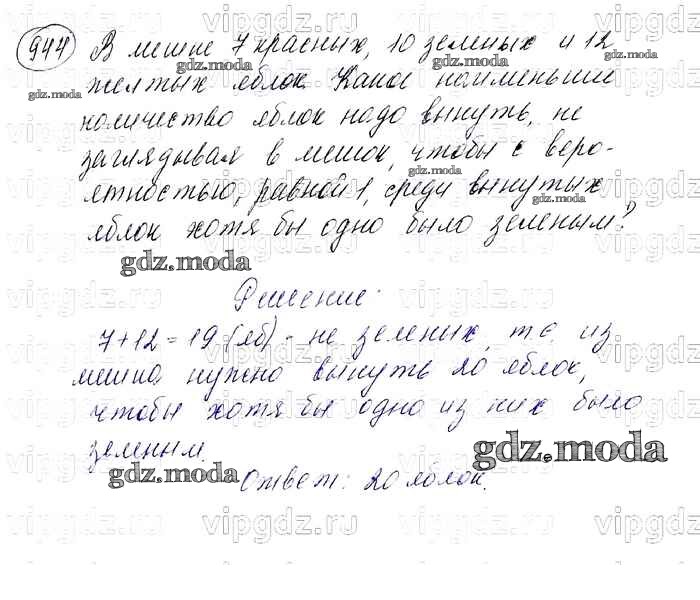 944 В мешке 7 красных, 10 зеленых и 12
желтых яблок. Какое наименьшее
количество яблок надо вынуть, не
заглядывая в мешок, чтобы с веро-
ятностью, равной 1, среди вынутых
яблок хотя бы одно было зеленым?
Решение:
7+12=19 (яб) - не зеленых, т.е. из
мешка нужно вынуть 20 яблок,
чтобы хотя бы одно из них было
зеленым.
Ответ: 20 яблок.
gdz.moda
vipgdz.ru